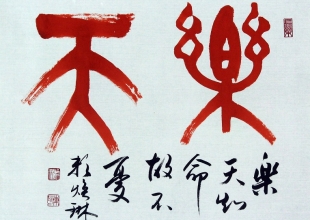 樂天
樂
天知
命
故不
憂